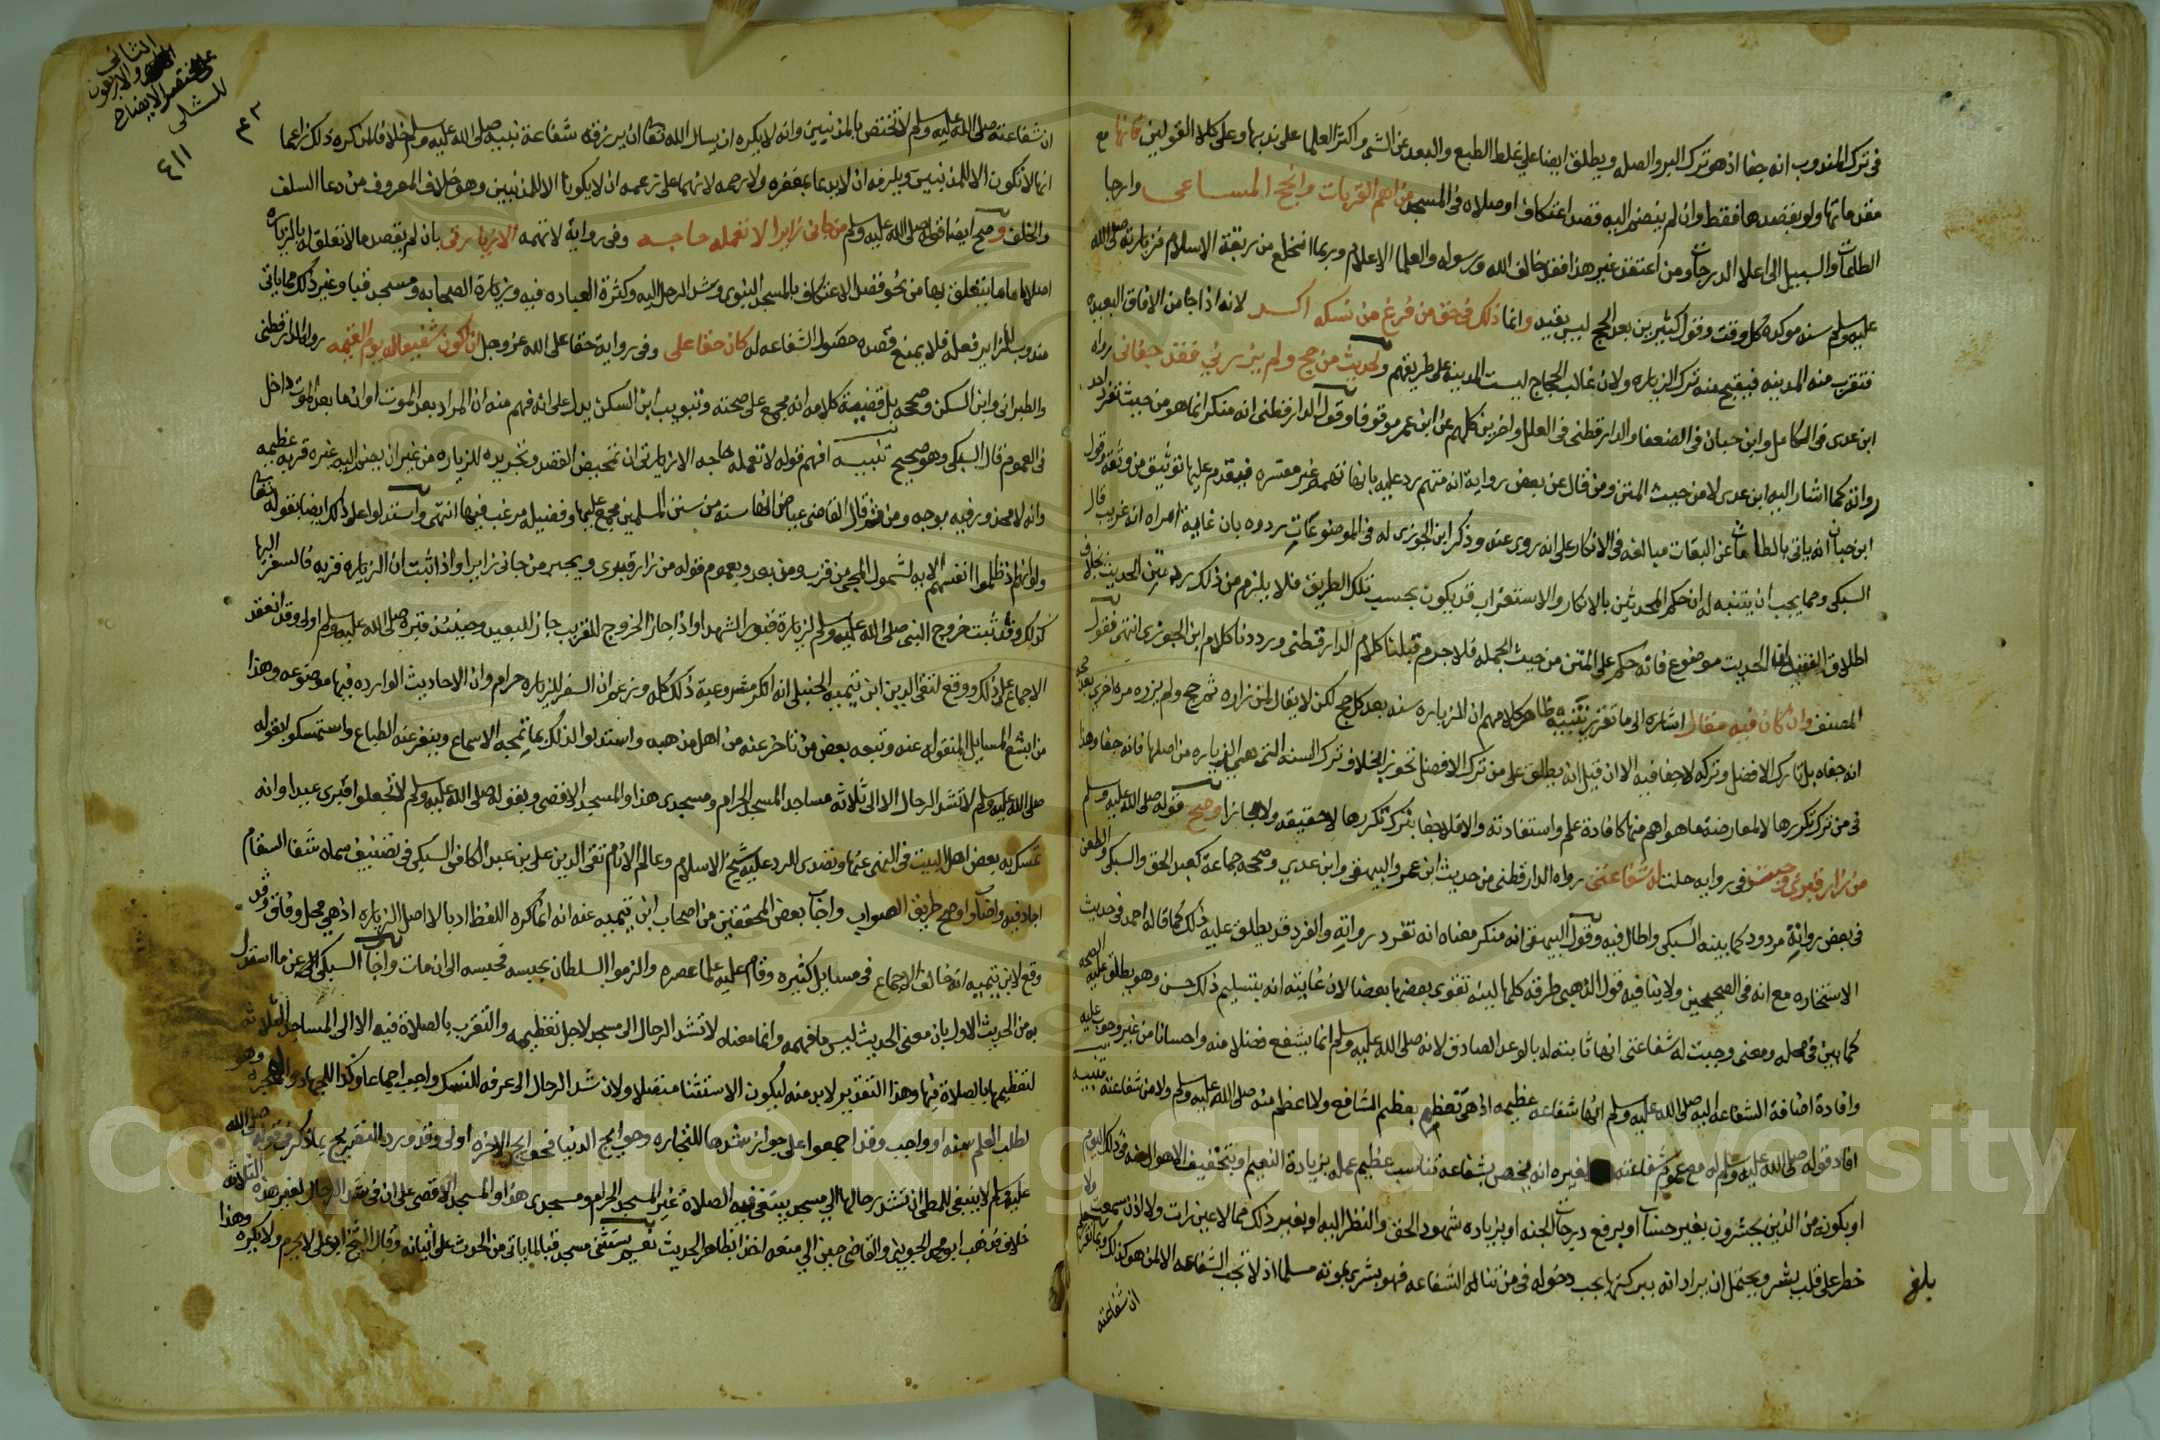 في ترك المندوب انه جفا اذ هو ترك البر والصله ويطلق ايضا علي غلظ الطبع والبعد عن الشى واكثر العلما على ندبها وعلى كلا القولين فانها مع
مقدماتها ولو بقصدها فقط وان لم ينضم اليه قصد اعتكاف او صلاه فى المسجد من اهم القربات وانجح المساعى وارجا
الطاعات والسبيل الى اعلا الدرجات ومن اعتقد غير هذا فقد خالف الله ورسوله والعلما الاعلام وربما انخلع من ربقة الاسلام فزيارته صلى الله
عليه وسلم سنه موكده كل وقت وقول كثيرين بعد الحج ليس بقيد وانما ذلك فى حق من فرغ من نسكه اكد لانه اذا جا من الافاق البعيده
فتقرب منه المدينه فيقبح منه ترك الزياره ولان غالب الحجاج ليست المدينة على طريقهم ولحديث من حج ولم يزرني فقد جفانى رواه
ابن عدى فى الكامل وابن حبان فى الضعفا والدارقطنى فى العلل واخرين كلهم عن ابن عمر موقوفا وقول الدارقطنى انه منكر انما هو من حيث تفرد احد
رواته كما اشار اليه ابن عدى لا من حيث المتن ومن قال عن بعض رواية انه متهم يرد عليه بانها تهمه غير مفسره فيقدم عليها توثيق من وثقه وقول
ابن حبان انه ياتى بالطامات عن الثقات مبالغه فى الانكار على انه روى عنه وذكر ابن الجوزى له فى الموضوعات يردوه بان غاية امراه انه غريب قال
السبكى ومما يجب ان يتنبه له ان حكم المحدثين بالانكار والاستغراب قد يكون بحسب تلك الطريق فلا يلزم من ذلك رد متن الحديث بخلاف
اطلاق الفقيه ان الحديث موضوع فانه حكم على المتن من حيث الجمله فلا جرم قبلنا كلام الدارقطنى ورددنا كلام ابن الجوزى انتهى فقول
المصنف وان كان فيه مقال اشاره الى ما تقرر تنبيه ظاهر كلامهم ان الزياره سنه بعد كل حج لكن لا يقال لمن زاره ثم حج ولم يزره مره اخرى بعد حجه
انه جفاه بل تارك الافضل وتركه لا جفا فيه الا ان قيل انه يطلق على من ترك الافضل تجوزا بخلاف ترك السنه التى هى الزياره من اصلها فانه جفا وهذا
فى من ترك تكررها لا لمعارضة ما هو اهم منها كافادة علم واستفادته والا فلا جفا بترك تكررها لا حقيقه ولا مجازا وصح قوله صلى الله عليه وسلم
من زار قبرى وجبت وفى روايه حلت له شفاعتى رواه الدارقطنى من حديث ابن عمر والبيهقى وابن عدي وصححه جماعة كعبد الحق والسبكى والطعن
فى بعض رواته مردود كما بينه السبكى واطال فيه وقول البيهقى انه منكر معناه انه تفرد به رواته والفرد قد يطلق عليه ذلك كما قاله احمد فى حديث
الاستخاره مع انه فى الصحيحين ولا ينافيه قول الذهبى طرقه كلها لينه تقوى بعضها بعضا لان غايته انه بتسليم ذلك حسن وهو يطلق عليه الصحه
كما بين فى محله ومعنى وجبت له شفاعتى انها ثابته له بالوعد الصادق لانه صلى الله عليه وسلم انما يشفع فضلا منه واحسانا من غير وجوب عليه
وافادة اضافة الشفاعه اليه صلى الله عليه وسلم انها شفاعه عظيمه اذ هى تعظم بعظم الشافع ولا اعظم منه صلى الله عليه وسلم ولا من شفاعته تنبيه
افاد قوله صلى الله عليه وسلم له مع عموم شفاعته لغيره انه يخص بشفاعه تناسب عظيم عمله بزيادة النعيم او بتخفيف الاهوال عنه فى ذلك اليوم
او بكونه من الذين يحشرون بغير حساب او برفع درجات الجنه او بزياده شهود الحق والنظر اليه او بغير ذلك مما لا عين رات ولا اذن سمعت ولا
خطر على قلب بشر ويحتمل ان يراد انه ببركتها يجب دخوله فى من تناله الشفاعه فهو بشرى بموته مسلما اذ لا تجب الشفاعه الا لمن هو كذلك
ان شفاعته
بلغ
الثانى
والاربعون
على مختصر الايضاح
للشلى
٤١١
٤٢
ان شفاعته صلى الله عليه وسلم لا تختص بالمذنبين وانه لا يكره ان يسال الله تعالى ان يرزقه شفاعة نبيه صلى الله عليه وسلم خلافا لمن كره ذلك زاعما
انها لا تكون الا للمذنبين ويلزمه ان لا يدعا بمغفره ولا رحمه لانهما على زعمه ان لا يكونا الا للمذنبين وهو خلاف المعروف من دعا السلف
والخلف وصح ايضا قوله صلى الله عليه وسلم من جانى زايرا لا تعمله حاجه وفى رواية لا تهمه الا زيارتى بان لم يقصد ما لا تعلق له بالزياره
اصلا اما ما يتعلق بها من نحو قصد الاعتكاف بالمسجد النبوى وشد الرحل اليه وكثرة العباده فيه وزيارة الصحابه ومسجد قبا وغير ذلك مما ياتى
مندوب للزاير فعله فلا يمنع قصده حصول الشفاعه له كان حقا على وفى رواية حقا على الله عز وجل ان اكون شفيعا له يوم القيمه رواه الدارقطنى
والطبرانى وابن السكن وصححه بل قضية كلامه انه مجمع على صحته وتبويب ابن السكن يدل على انه فهم منه ان المراد بعد الموت او ان ما بعد الموت داخل
فى العموم قال السبكى وهو صحيح تنبيه افهم قوله لا تعمله حاجه الا زيارتى ان تمحيض القصد وتجريده للزياره من غير ان يضم اليه غيره قربه عظيمه
وانه لا محذور فيه بوجه ومن ثم قال القاضى عياض انها سنه من سنن المسلمين مجمع عليها وفضيله مرغب فيها انتهى واستدلوا على ذلك ايضا بقوله تعالى
ولو انهم اذ ظلموا انفسهم الايه لشمول المجى من قرب ومن بعد وبعموم قوله من زار قبرى وبخبر من جانى زايرا واذا ثبت ان الزياره قربه فالسفر اليها
كذلك وقد ثبت خروج النبى صلى الله عليه وسلم لزيارة قبور الشهدا واذا جاز الخروج للقريب جاز للبعيد وحينئذ قبره صلى الله عليه وسلم اولى وقد انعقد
الاجماع على ذلك ووقع لتقى الدين ابن تيميه الحنبلى انه انكر مشروعية ذلك كله وزعم ان السفر للزياره حرام وان الاحاديث الوارده فيها موضوعه وهذا
من ابشع المسايل المنقوله عنه وتبعه بعض من تاخر عنه من اهل مذهبه واستدلوا لذلك بما تمجه الاسماع وينفر عنه الطباع واستمسكوا بقوله
صلى الله عليه وسلم لا تشد الرحال الا الى ثلاثه مساجد المسجد الحرام ومسجدى هذا والمسجد الاقصى وبقوله صلى الله عليه وسلم لا تجعلوا قبرى عيدا وانه
تمسك به بعض اهل البيت فى النهى عنها وتصدى للرد عليه شيخ الاسلام وعالم الانام تقى الدين على بن عبد الكافى السبكى فى تصنيف سماه شفا السقام
اجاد فيه واصاب واوضح طريق الصواب واجاب بعض المحققين من اصحاب ابن تيميه عنه انه انما كره اللفظ ادبا لا اصل الزياره اذ هى محل وفاق وقد
وقع لابن تيميه انه خالف الاجماع فى مسايل كثيره وقام عليه علما عصره والزموا السلطان بحبسه فحبسه الى ان مات واجاب السبكى عن ما استدل
به من الحديث الاول بان معنى الحديث ليس ما فهمه وانما معناه لا تشد الرحال الى مسجد لاجل تعظيمه والتقرب بالصلاة فيه الا الى المساجد الثلاثه
لتعظيمها بالصلاة فيها وهذا التقدير لا بد منه ليكون الاستثنا متصلا ولان شد الرحال الى عرفه للنسك واجب اجماعا وكذا الجهاد والهجره وهو
لطلب العلم سنه او واجب وقد اجمعوا على جواز شدها للتجاره وحوايج الدنيا فحوايج الاخره اولى وقد ورد التصريح بما ذكر فى قوله صلى الله
عليه وسلم لا ينبغى للمطى ان تشد رحالها الى مسجد يبتغى فيه الصلاة غير المسجد الحرام ومسجدى هذا والمسجد الاقصى على ان فى شد الرحال لغير هذه الثلاثه
خلاف فذهب ابو محمد الجوينى والقاضى حسين الى منعه اخذا بظاهر الحديث نعم يستثنى مسجد قبا لما ياتى من الحث على اتيانه وقال الشيخ ابو على لا يحرم ولا يكره وهذا